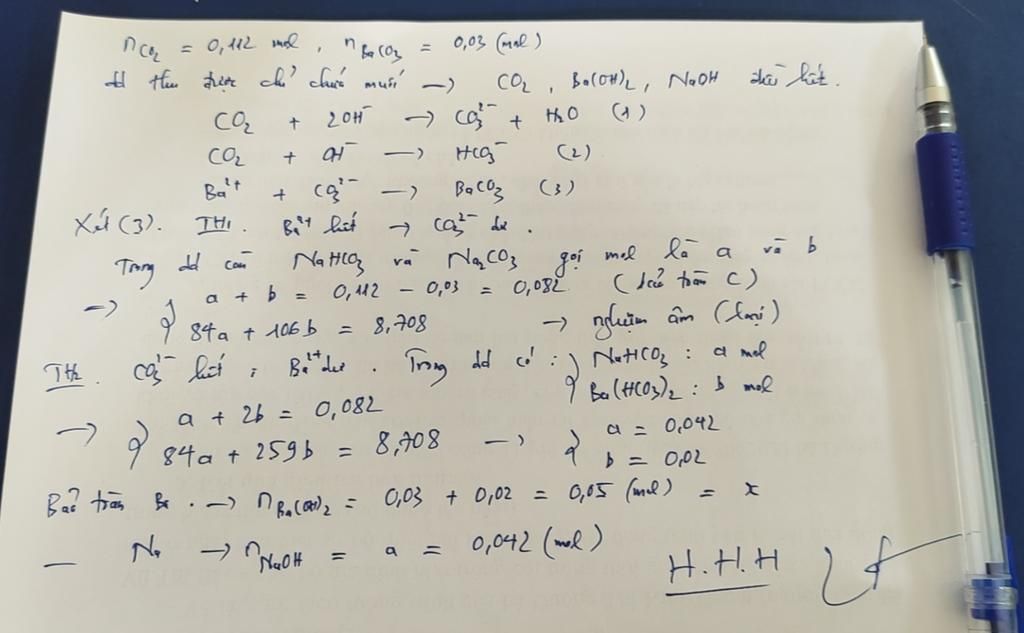 nCO₂ = 0,112 mol, nBaCO₃ = 0,03 (mol)
dd thu được chỉ chứa muối → CO₂, Ba(OH)₂, NaOH đều hết.
CO₂ + 2OH⁻ → CO₃²⁻ + H₂O (1)
CO₂ + OH⁻ → HCO₃⁻ (2)
Ba²⁺ + CO₃²⁻ → BaCO₃ (3)
Xét (3). TH1. Ba²⁺ hết → CO₃²⁻ dư.
Trong dd còn NaHCO₃ và Na₂CO₃ gọi mol là a và b
→ { a + b = 0,112 - 0,03 = 0,082 (bảo toàn C)
84a + 106b = 8,708 → nghiệm âm (loại)
TH2. CO₃²⁻ hết; Ba²⁺ dư. Trong dd có: { NaHCO₃ : a mol
Ba(HCO₃)₂ : b mol
→ { a + 2b = 0,082
84a + 259b = 8,708 → { a = 0,042
b = 0,02
Bảo toàn Ba. → nBa(OH)₂ = 0,03 + 0,02 = 0,05 (mol) = x
— Na → nNaOH = a = 0,042 (mol)
H.H.H